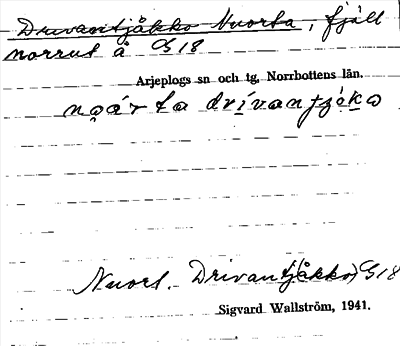 Drivantjåkko Nuorta, fjäll
norrut å G18
Arjeplogs sn och tg. Norrbottens län.
Nuort. Drivantjåkko) G18
Sigvard Wallström, 1941.